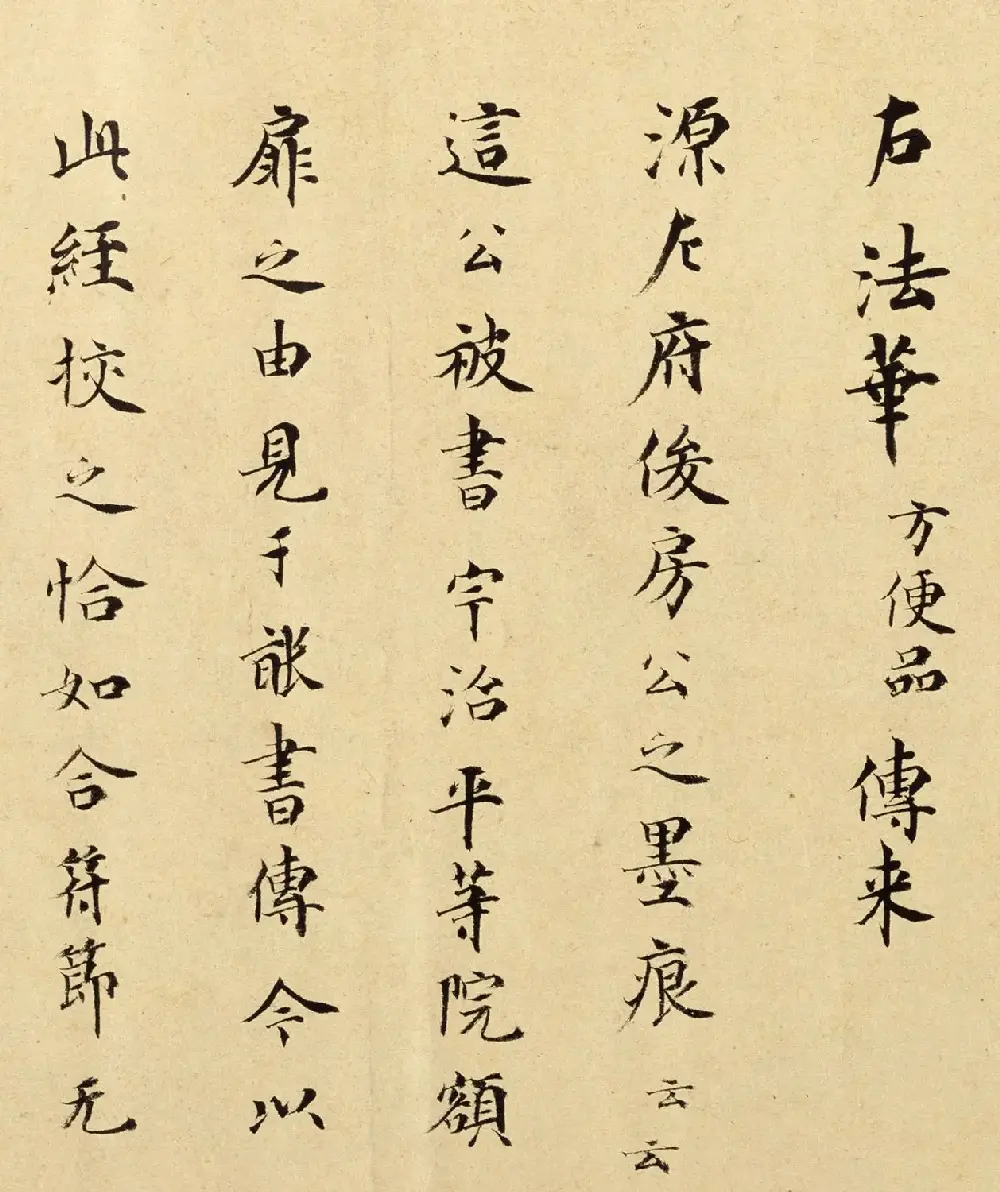 右法華方便品傳来
源左府俊房公之墨痕云云
這公被書宇治平等院額
扉之由見于能書傳今以
此經挍之恰如合符節无